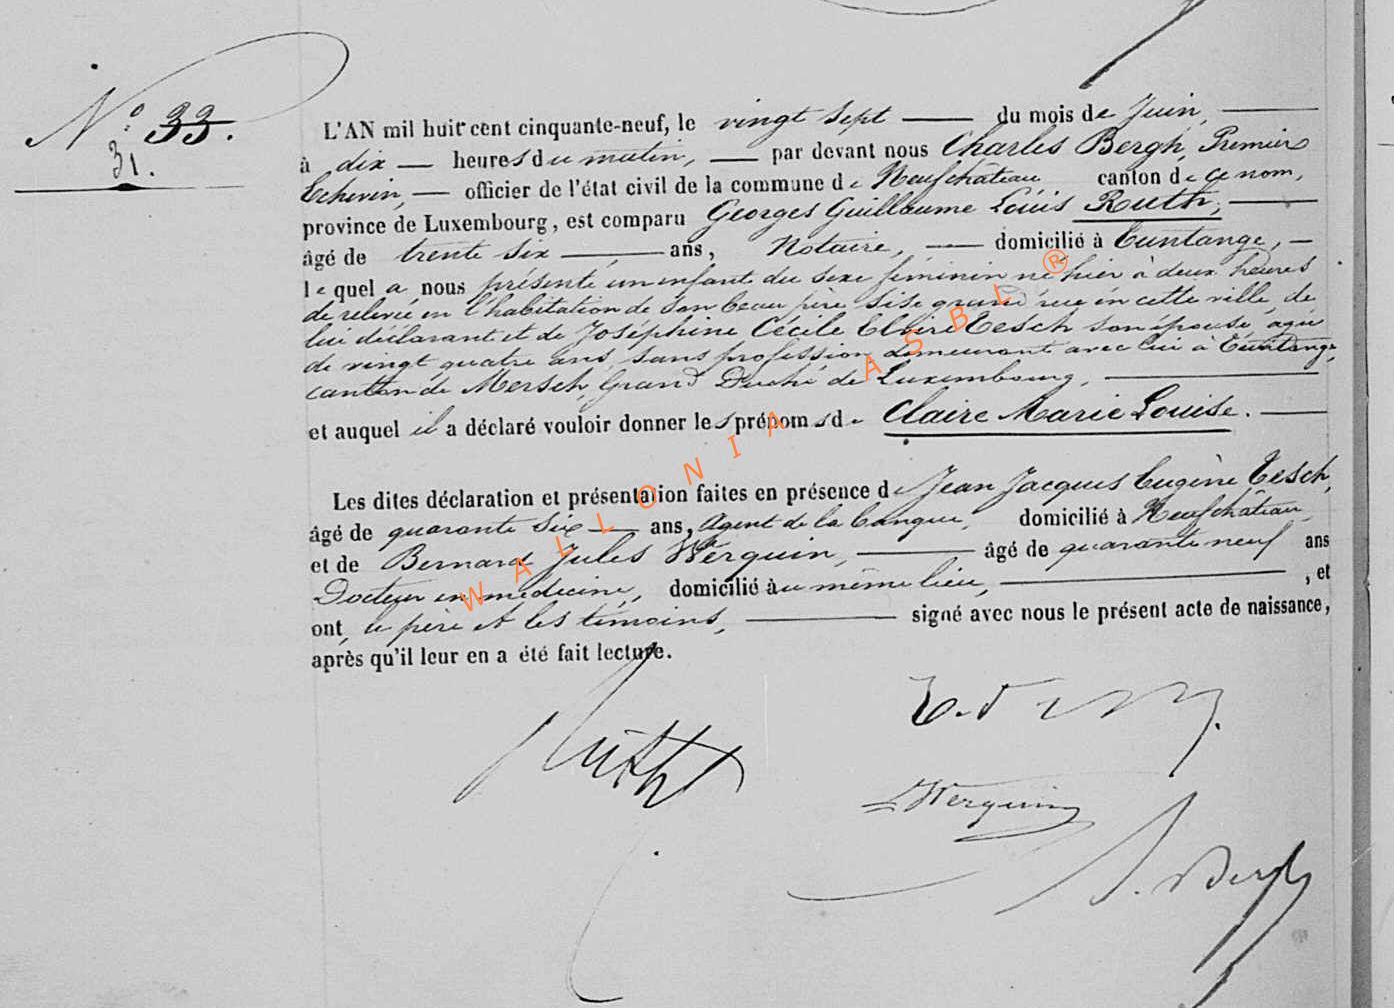 N° 33.
31.
L'AN mil huit cent cinquante-neuf, le vingt sept du mois de Juin,
à dix heures du matin, par devant nous Charles Bergh, Premier
Echevin, officier de l'état civil de la commune de Neufchâteau canton de ce nom,
province de Luxembourg, est comparu Georges Guillaume Louis Ruth,
âgé de trente six ans, Notaire, domicilié à Tuntange,
lequel a nous présenté un enfant du sexe féminin né hier à deux heures
de relevée en l'habitation de son beau père sise grand'rue en cette ville, de
lui déclarant et de Joséphine Cécile Elvire Tesch son épouse, agée
de vingt quatre ans, sans profession, demeurant avec lui à Tuntange,
canton de Mersch, Grand Duché de Luxembourg,
et auquel il a déclaré vouloir donner les prénoms de Claire Marie Louise.
Les dites déclaration et présentation faites en présence de Jean Jacques Eugène Tesch,
âgé de quarante six ans, Agent de la banque, domicilié à Neufchâteau
et de Bernard Jules Werquin, âgé de quarante neuf ans
Docteur en médecine, domicilié au même lieu, , et
ont, le père et les témoins, signé avec nous le présent acte de naissance,
après qu'il leur en a été fait lecture.
Ruth
Werquin
Bergh
WALLONIA ASBL ®